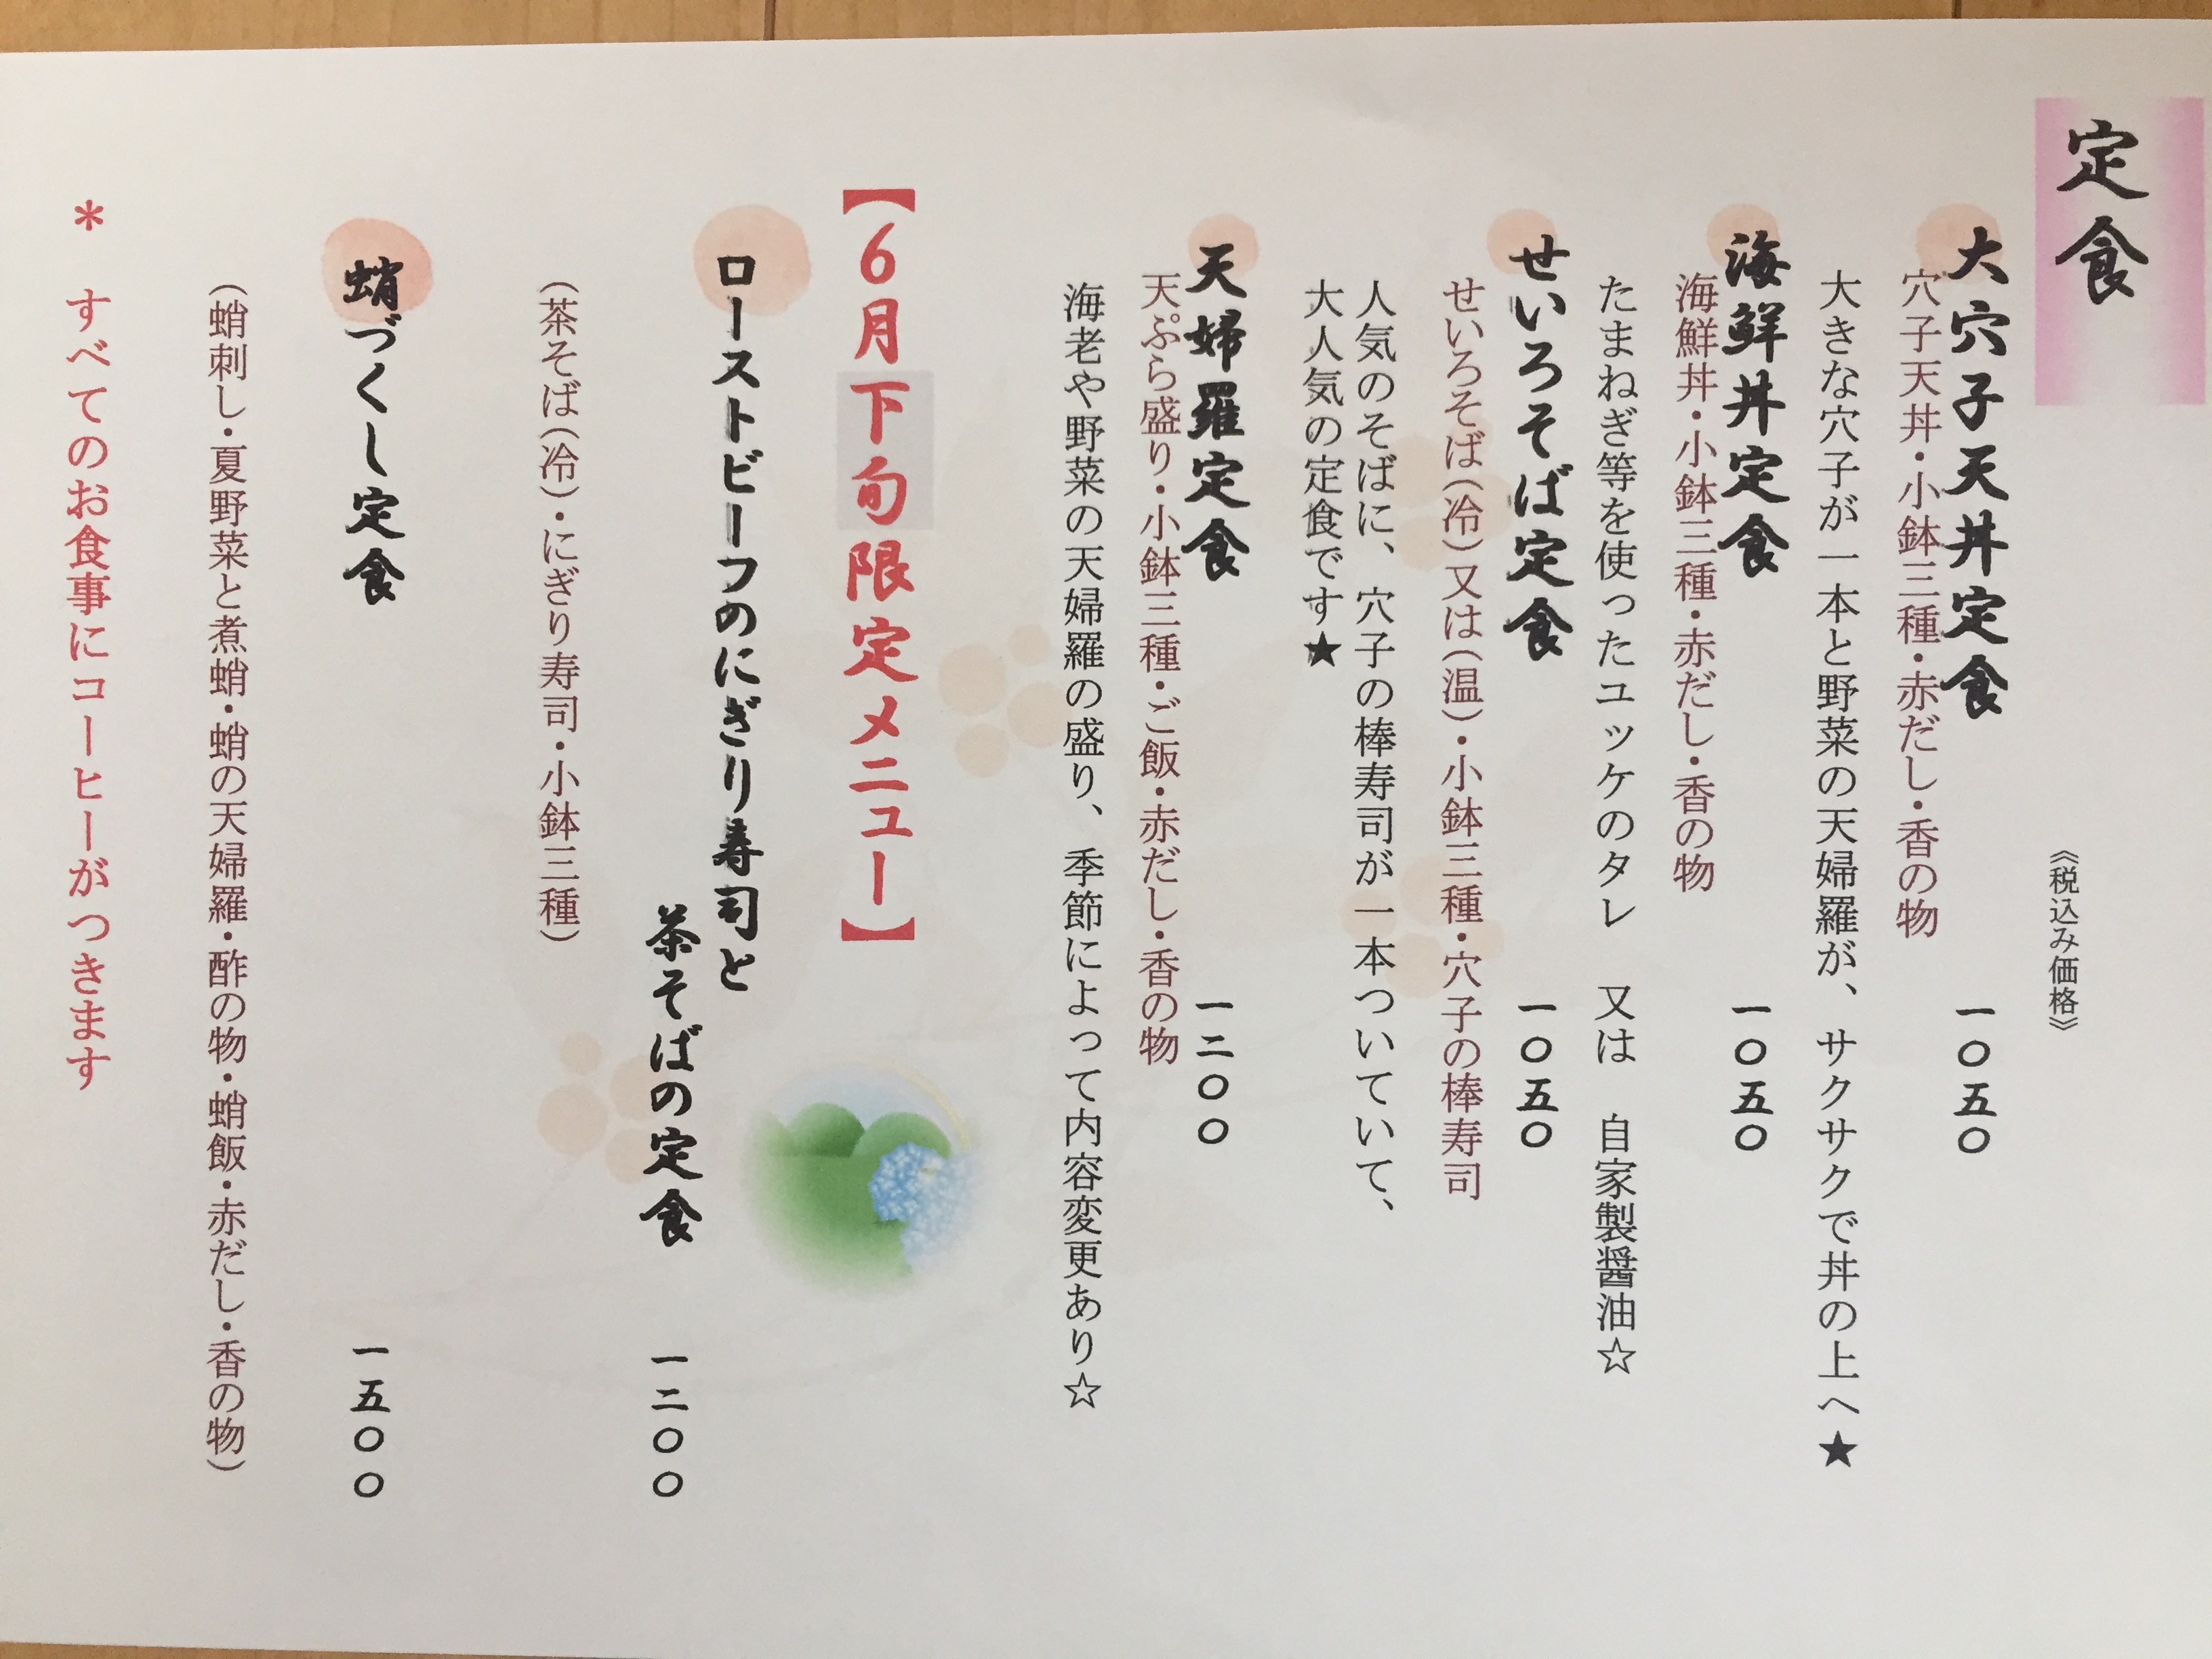 定食
《税込み価格》
大穴子天丼定食 一〇五〇
穴子天丼・小鉢三種・赤だし・香の物
大きな穴子が一本と野菜の天婦羅が、サクサクで丼の上へ★
海鮮丼定食 一〇五〇
海鮮丼・小鉢三種・赤だし・香の物
たまねぎ等を使ったユッケのタレ 又は 自家製醤油☆
せいろそば定食 一〇五〇
せいろそば(冷)又は(温)・小鉢三種・穴子の棒寿司
人気のそばに、穴子の棒寿司が一本ついていて、
大人気の定食です★
天婦羅定食 一二〇〇
天ぷら盛り・小鉢三種・ご飯・赤だし・香の物
海老や野菜の天婦羅の盛り、季節によって内容変更あり☆
【6月下旬限定メニュー】
ローストビーフのにぎり寿司と
茶そばの定食 一二〇〇
(茶そば(冷)・にぎり寿司・小鉢三種)
蛸づくし定食 一五〇〇
(蛸刺し・夏野菜と煮蛸・蛸の天婦羅・酢の物・蛸飯・赤だし・香の物)
＊ すべてのお食事にコーヒーがつきます